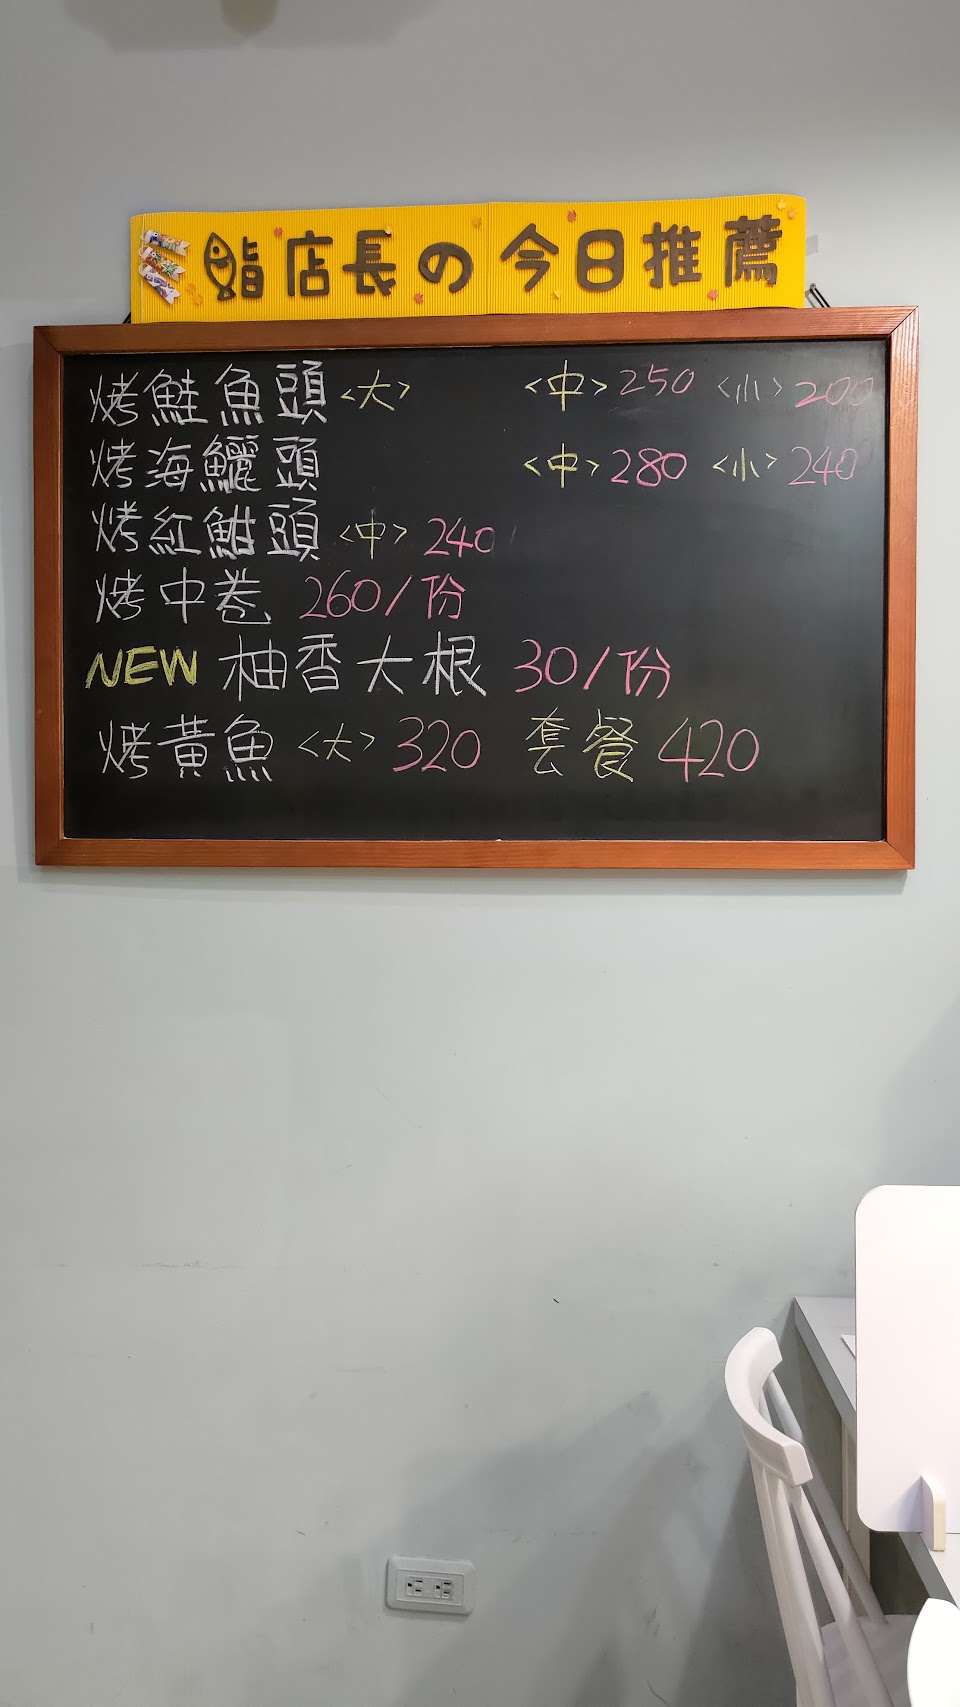 鮨店長の今日推薦
烤鮭魚頭<大> <中>250 <小>200
烤海鱺頭 <中>280 <小>240
烤紅魽頭 <中>240
烤中卷 260/份
NEW 柚香大根 30/份
烤黃魚 <大>320 套餐420